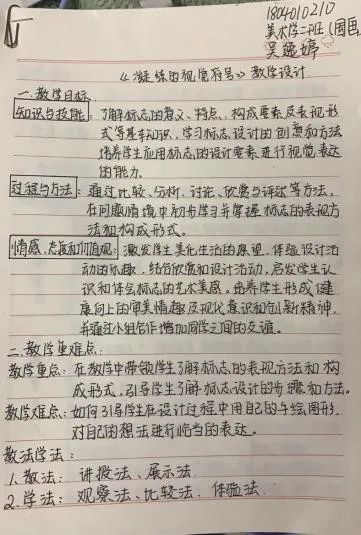 1804010210
美术学二班(国画
吴逸婷
《凝练的视觉符号》教学设计
一.教学目标
知识与技能:了解标志的意义、特点、构成要素及表现形
式等基本知识,学习标志设计的创意和方法
培养学生应用标志的设计要素进行视觉表达
的能力.
过程与方法:通过比较、分析、讨论、欣赏与评述等方法,
在问题情境中初步学习并掌握标志的表现方
法和构成形式。
情感、态度和价值观:激发学生美化生活的愿望,体验设计活
动的乐趣,结合欣赏和设计活动,启发学生认
识和体会标志的艺术美感。培养学生形成健
康向上的审美情趣及现代意识和创新精神,
并通过小组合作增加同学之间的友谊。
二.教学重难点:
教学重点:在教学中带领学生了解标志的表现方法和构
成形式,引导学生了解标志设计的步骤和方法。
教学难点:如何引导学生在设计过程中用自己的手绘图形,
对自己的想法进行恰当的表达。
教法学法:
1.教法:讲授法、展示法
2.学法:观察法、比较法、体验法